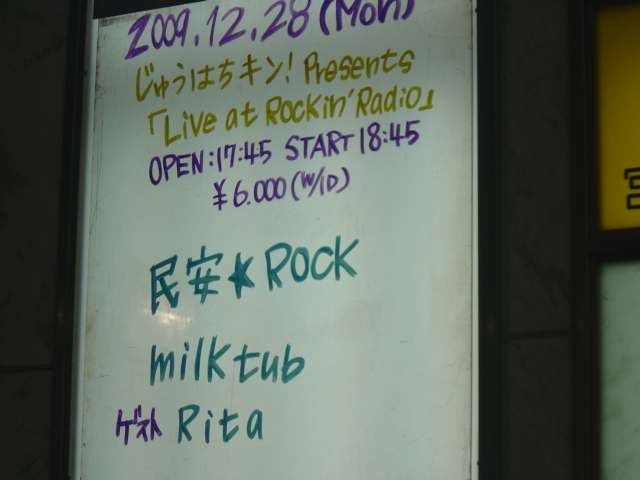 2009.12.28 (Mon)
じゅうはちキン! Presents
「Live at Rockin'Radio」
OPEN:17:45 START 18:45
¥6.000 (w/1D)
民安★ROCK
milktub
ゲスト Rita